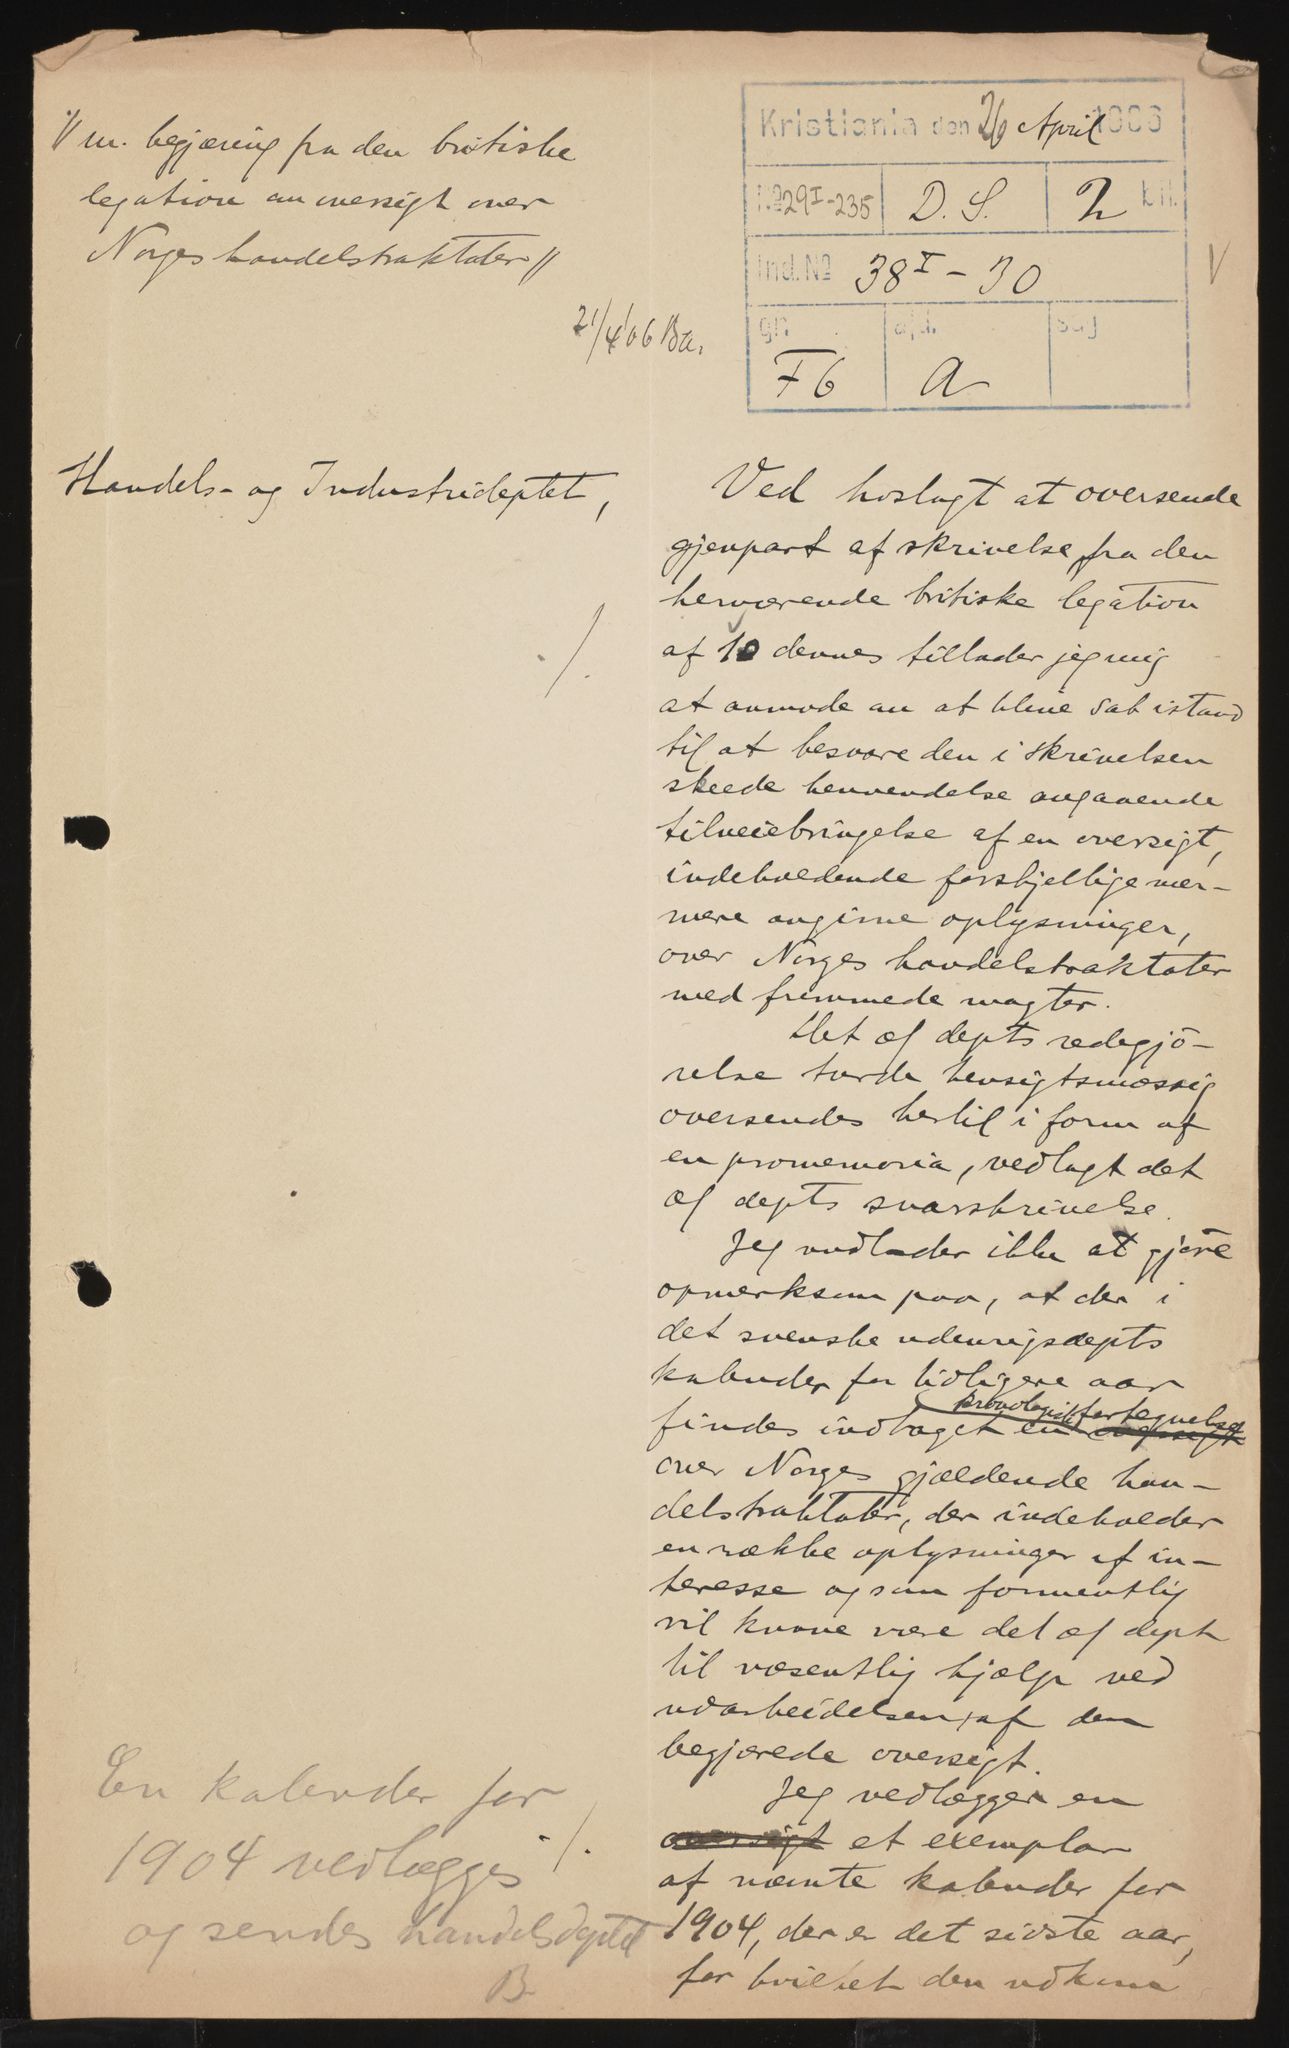 // m. begjæring fra den britiske
legation om oversigt over
Norges handelstraktater //
21/4 06 Ba.
Kristiania den 26 April 1906
No 29 I - 235 D. S. 2 bil.
Ind. No 38 I - 30
gr. afd. sag
F 6 A
V
Handels- og Industrideptet,
Ved hoslagt at oversende
gjenpart af skrivelse fra den
herværende britiske legation
af 10 dennes tillader jeg mig
at anmode om at blive sat istand
til at besvare den i skrivelsen
skeede henvendelse angaaende
tilveiebringelse af en oversigt,
indeholdende forskjellige nær-
mere angivne oplysninger,
over Norges handelstraktater
med fremmede magter.
Det æf depts redegjö-
relse turde hensigtsmæssig
oversendes hertil i form af
en promemoria, vedlagt det
æf depts svarskrivelse.
Jeg undlader ikke at gjøre
opmerksom paa, at der i
det svenske udenrigsdepts
kalender for tidligere aar
findes indtaget en kronologisk fortegnelse oversigt
over Norges gjældende han-
delstraktater, der indeholder
en række oplysninger af in-
teresse og som formentlig
vil kunne være det æf dept
til væsentlig hjælp ved
udarbeidelsen af den
begjærede oversigt.
Jeg vedlægger en
oversigt et exemplar
af nævnte kalender for
1904, der er det sidste aar,
for hvilket den udkom
./.
En kalender for
1904 vedlægges ./.
og sendes handelsdeptet
B.